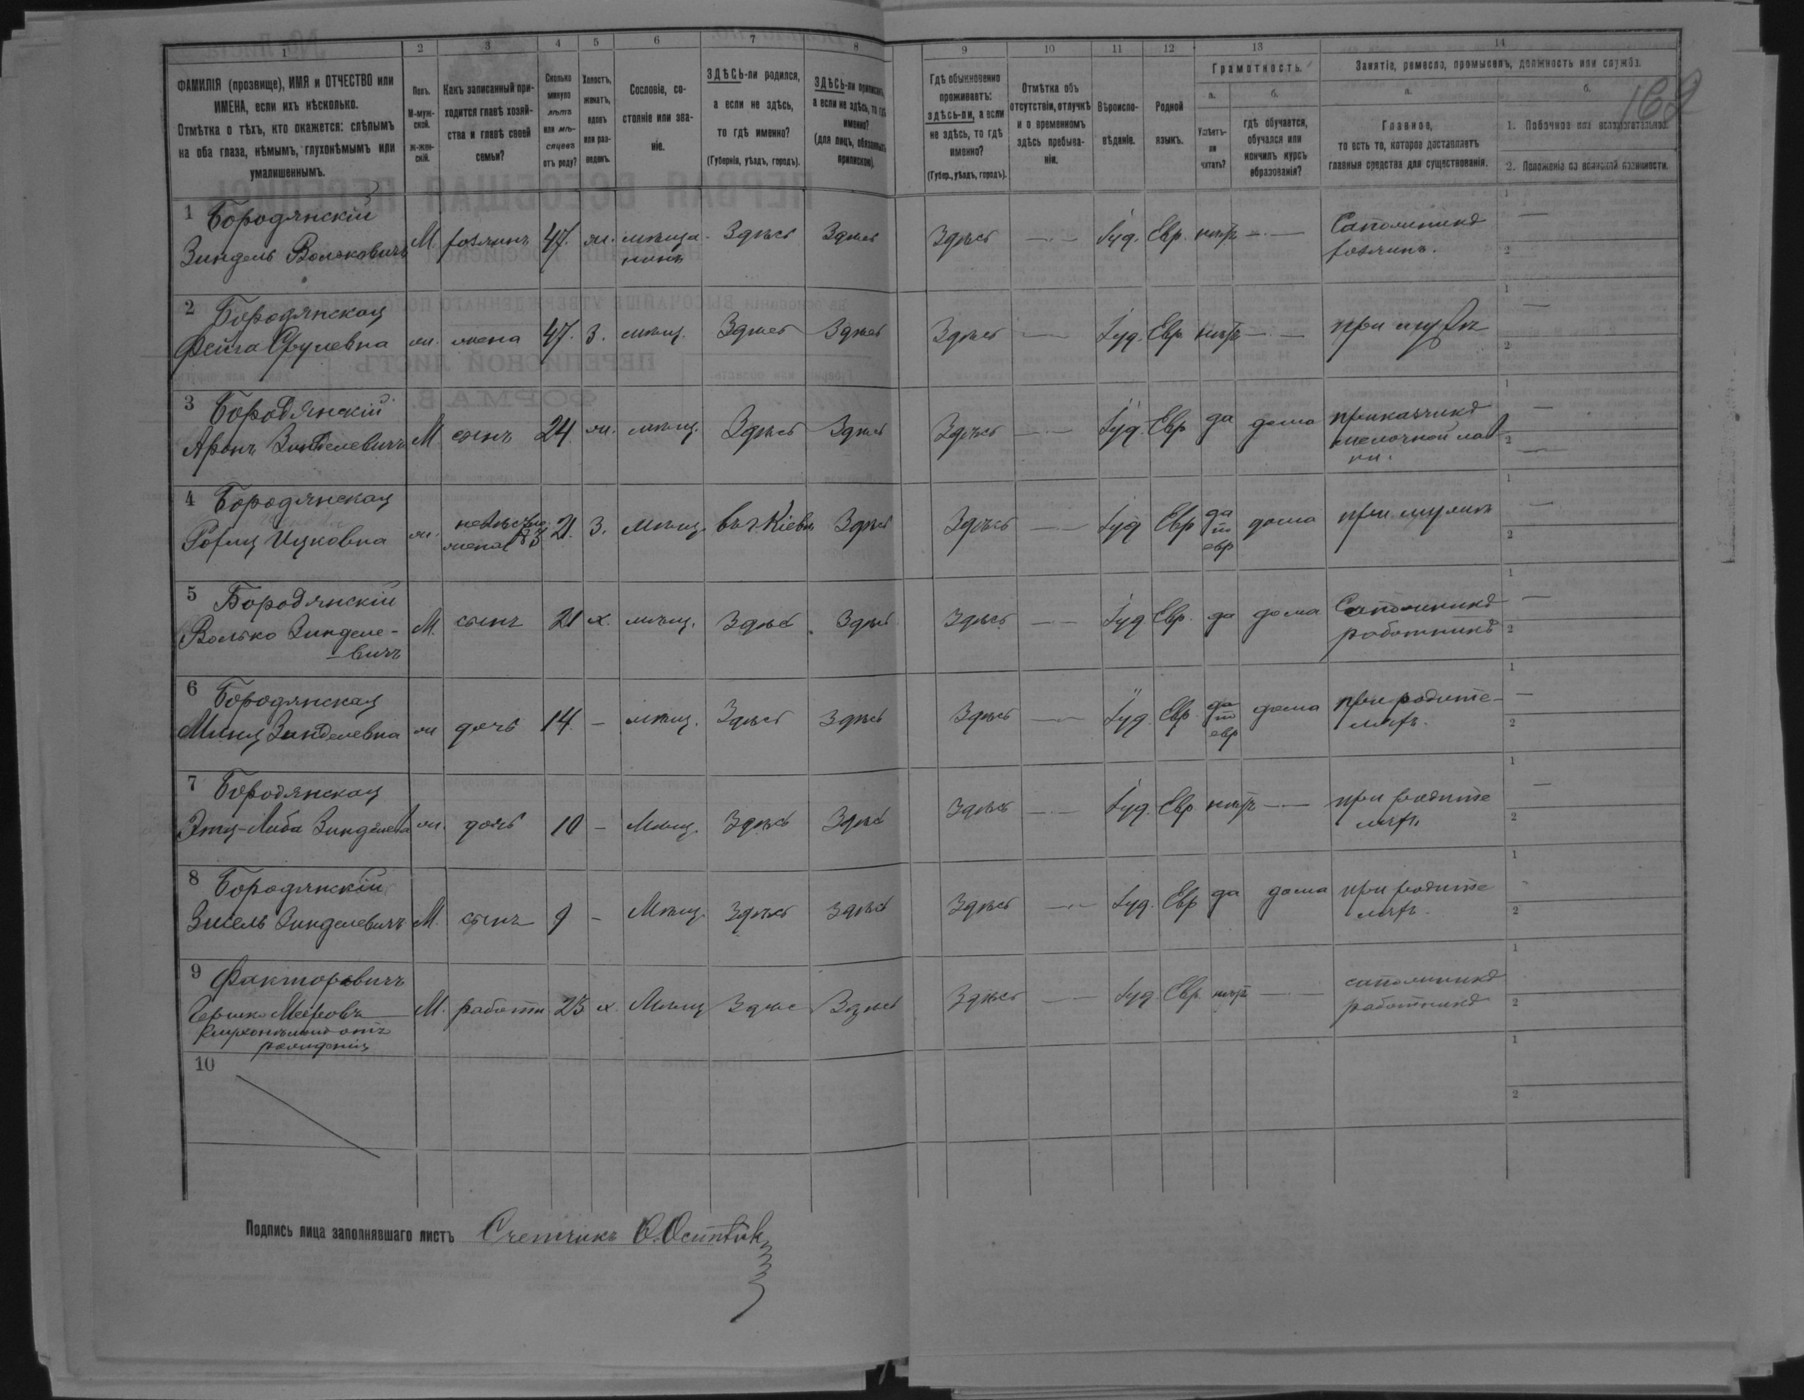 1 2 3 4 5 6 7 8 9 10 11 12 13 14
ФАМИЛІЯ (прозвище), ИМЯ и ОТЧЕСТВО или
ИМЕНА, если ихъ нѣсколько.
Отмѣтка о тѣхъ, кто окажется: слѣпымъ
на оба глаза, нѣмымъ, глухонѣмымъ или
умалишеннымъ.
Полъ.
М-муж-
ской.
Ж-жен-
скій.
Какъ записанный при-
ходится главѣ хозяй-
ства и главѣ своей
семьи?
Сколько
минуло
лѣтъ
или мѣ-
сяцевъ
отъ роду?
Холостъ,
женатъ,
вдовъ
или раз-
веденъ.
Сословіе, со-
стояніе или зва-
ніе.
ЗДѢСЬ-ли родился,
а если не здѣсь,
то гдѣ именно?
(Губернія, уѣздъ, городъ).
ЗДѢСЬ-ли приписанъ,
а если не здѣсь, то гдѣ
именно?
(для лицъ, обязанныхъ
припискою).
Гдѣ обыкновенно
проживаетъ:
здѣсь-ли, а если
не здѣсь, то гдѣ
именно?
(Губер., уѣздъ, городъ).
Отмѣтка объ
отсутствіи, отлучкѣ
и о временномъ
здѣсь пребыва-
ніи.
Вѣроиспо-
вѣданіе.
Родной
языкъ.
Грамотность.
а.
Умѣетъ-
ли
читать?
б.
гдѣ обучается,
обучался или
кончилъ курсъ
образованія?
Занятіе, ремесло, промыселъ, должность или служба.
а.
Главное,
то есть то, которое доставляетъ
главныя средства для существованія.
б.
1. Побочное или вспомогательное.
2. Положеніе по воинской повинности.
1 Бородянскій
Зиндель Волековичъ М. хозяинъ 47. ж. мѣща-
нинъ Здѣсь Здѣсь Здѣсь — Іуд. Евр. нѣтъ — Сапожникъ
хозяинъ.
2 Бородянская
Фейга Срулевна ж. жена 47. З. мѣщ. Здѣсь Здѣсь Здѣсь — Іуд. Евр нѣтъ — при мужѣ
3 Бородянскій
Аронъ Зинделевичъ М сынъ 24 ж. мѣщ. Здѣсь Здѣсь Здѣсь — Іуд. Евр да дома приказчикъ
мелочной лав
ки.
4 Бородянская
Ицковна ж. невѣстка
жена №3 21. З. мѣщ. въ г. Кіевѣ Здѣсь Здѣсь — Іуд Евр да
по
евр дома при мужѣ
5 Бородянскій
Волько Зинделе-
вичъ М. сынъ 21 х. мѣщ. Здѣсь Здѣсь Здѣсь — Іуд Евр. да дома Сапожникъ
работникъ
6 Бородянская
Зинделевна ж дочь 14. – мѣщ. Здѣсь Здѣсь Здѣсь — Іуд. Евр. да
по
евр дома при родите-
ляхъ.
7 Бородянская
Этя-Либа Зинделевна ж. дочь 10 – Мѣщ. Здѣсь Здѣсь Здѣсь — Іуд. Евр нѣтъ — при родите
ляхъ
8 Бородянскій
Зисель Зинделевичъ М. сынъ 9 – Мѣщ. Здѣсь Здѣсь Здѣсь — Іуд. Евр да дома при родите
ляхъ.
9 Факторовичъ
Гершко Мееровъ М. работн 23 х. Мѣщ Здѣсь Здѣсь Здѣсь — Іуд Евр. нѣтъ — сапожникъ
работникъ
глухонѣмой отъ
рожденія
10
Подпись лица заполнявшаго листъ Счетчикъ